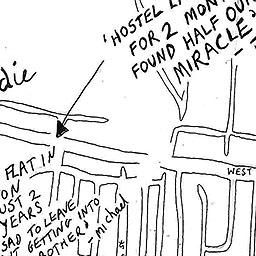 'HOSTEL
FOR 2 MONT
FOUND HALF OUN
MIRACLE
die
FLAT IN
ON
UST 2
YEARS
SAD TO LEAVE
T GETTING INTO
ROTHER
- michael
WEST